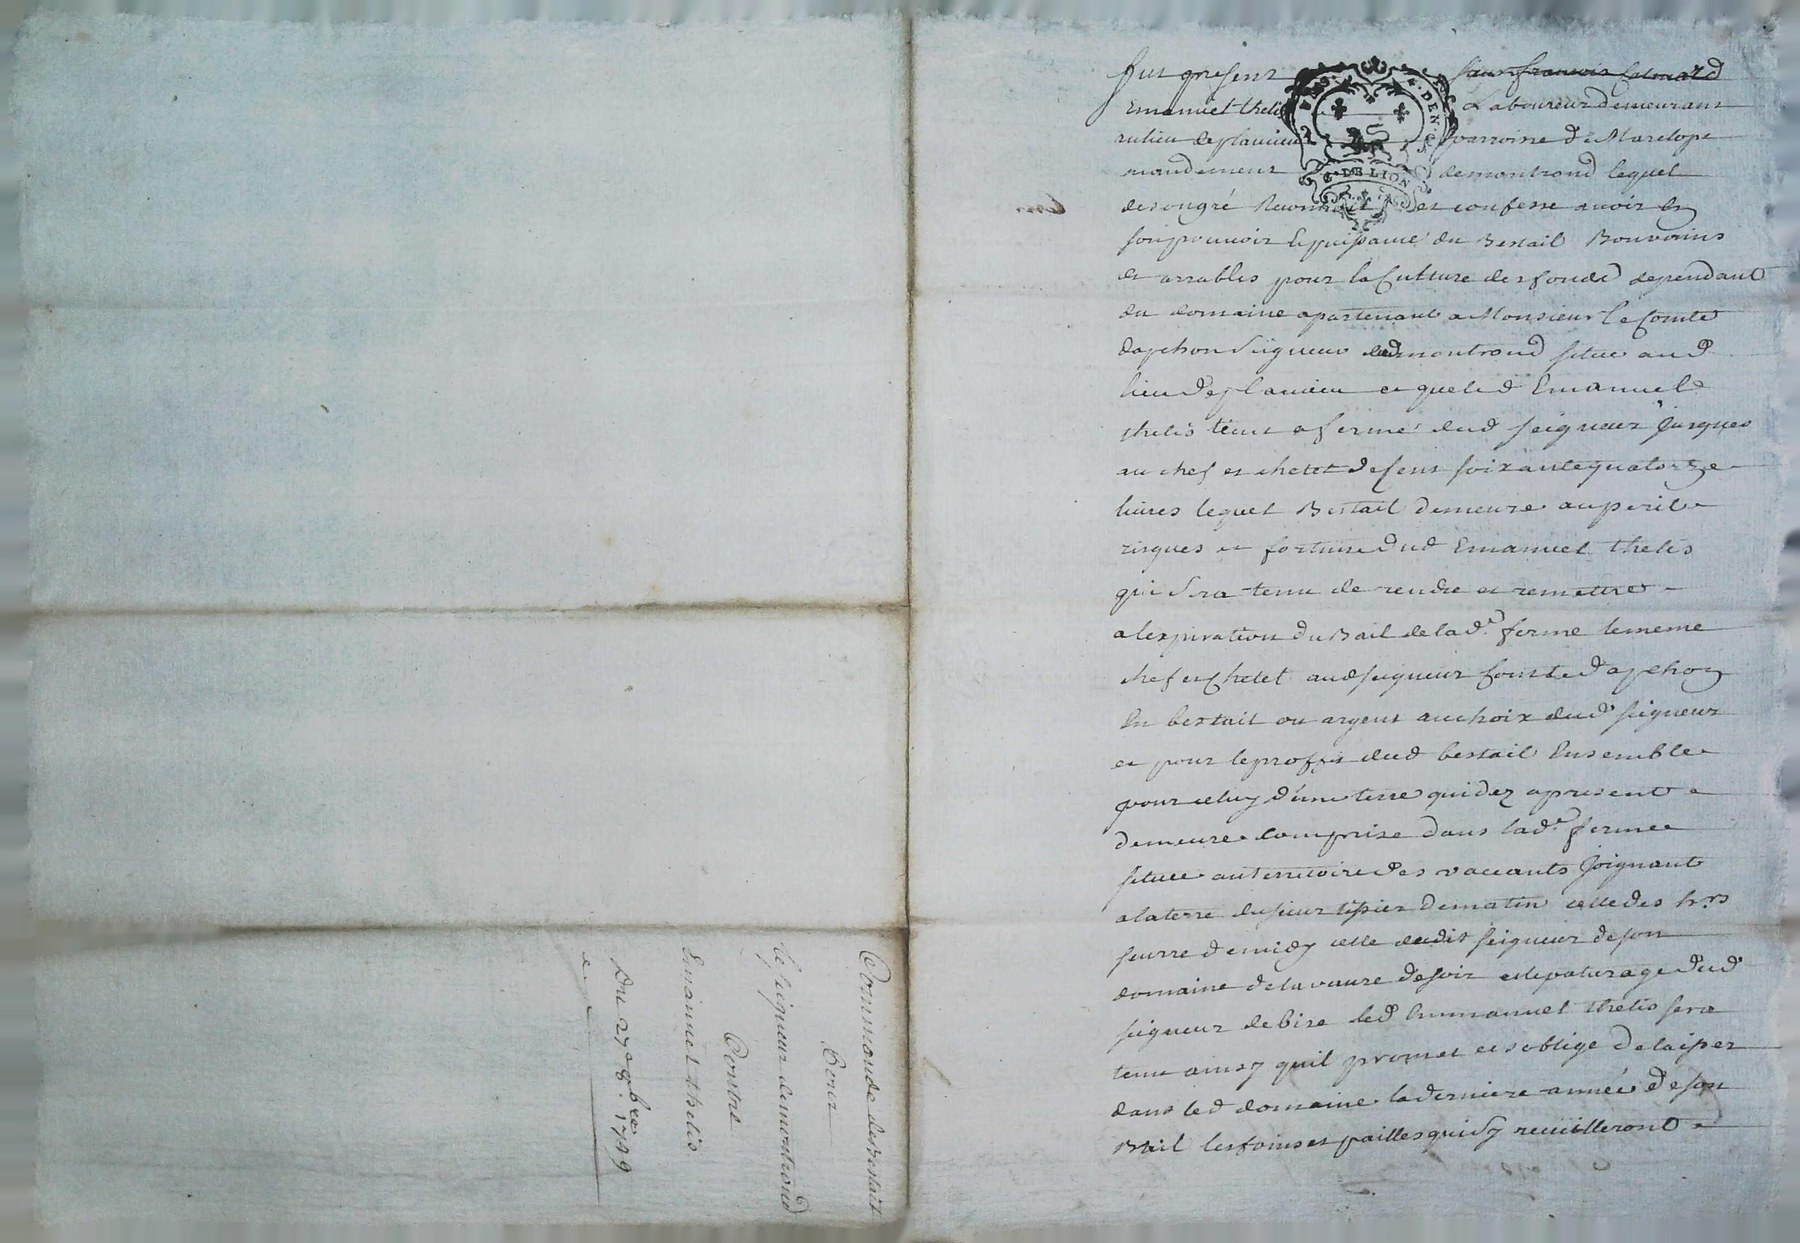 fut present
Emanuel thelis Laboureur demeurant
au lieu de plancieu parroisse de Marclopt
mandement de montrond lequel
de son gré Reconnoit et confesse avoir En
son pouvoir du Bestail Bouvoins
et arrables pour la Culture des fonds dependant
du domaine apartenant a Monsieur le Comte
dapchon seigneur dud montrond situé aud
lieu de plancieu et que led Emanuel
thelis tient a ferme dud seigneur Jusques
au chef et chetel de cent soixante quatorze
livres lequel Bestail demeure au peril
risques et fortune dud Emanuel thelis
qui sera tenu de rendre et remettre
a lexpiration du Bail de lad.e ferme le meme
chef et chetel aud seigneur Comte dapchon
En bestail ou argent au choix dud seigneur
et pour le proffit dud bestail Ensemble
pour celuy d'une terre qui dez apresent
demeure comprise dans lad.e ferme
située au territoire des vaccants Joignant
a la terre du sieur tissier de matin celle des h.rs
de midy celle dudit seigneur de son
domaine de la vaure de soir et le paturage dud
seigneur de bize led Emmanuel thelis sera
tenu ainsy quil promet et soblige de laisser
dans led domaine la derniere année de son
Bail les foins et pailles qui sy recuilleront
DE LION
Commande de bestail
Pour
le seigneur de montrond
Contre
Emanuel thelis
Du 27e 8.bre 1739